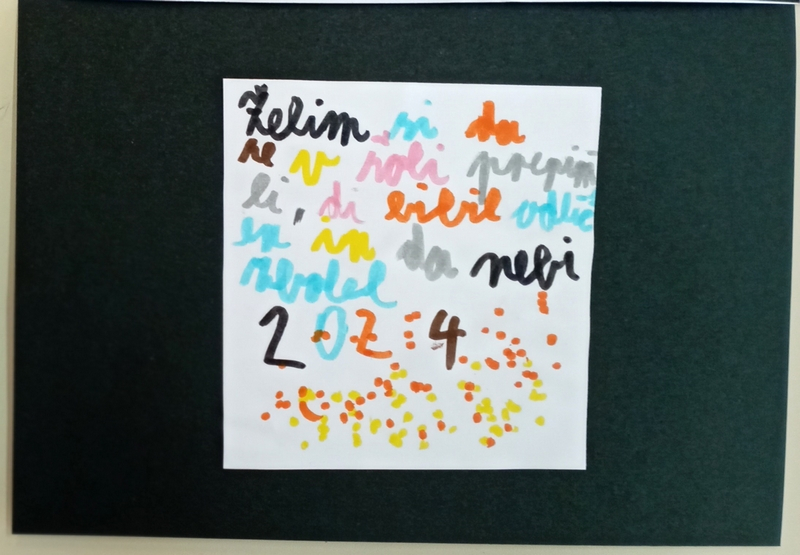 Želim si da
se v šoli prepim
li, di bibil odlič
en in da nebi
zbolel
2024